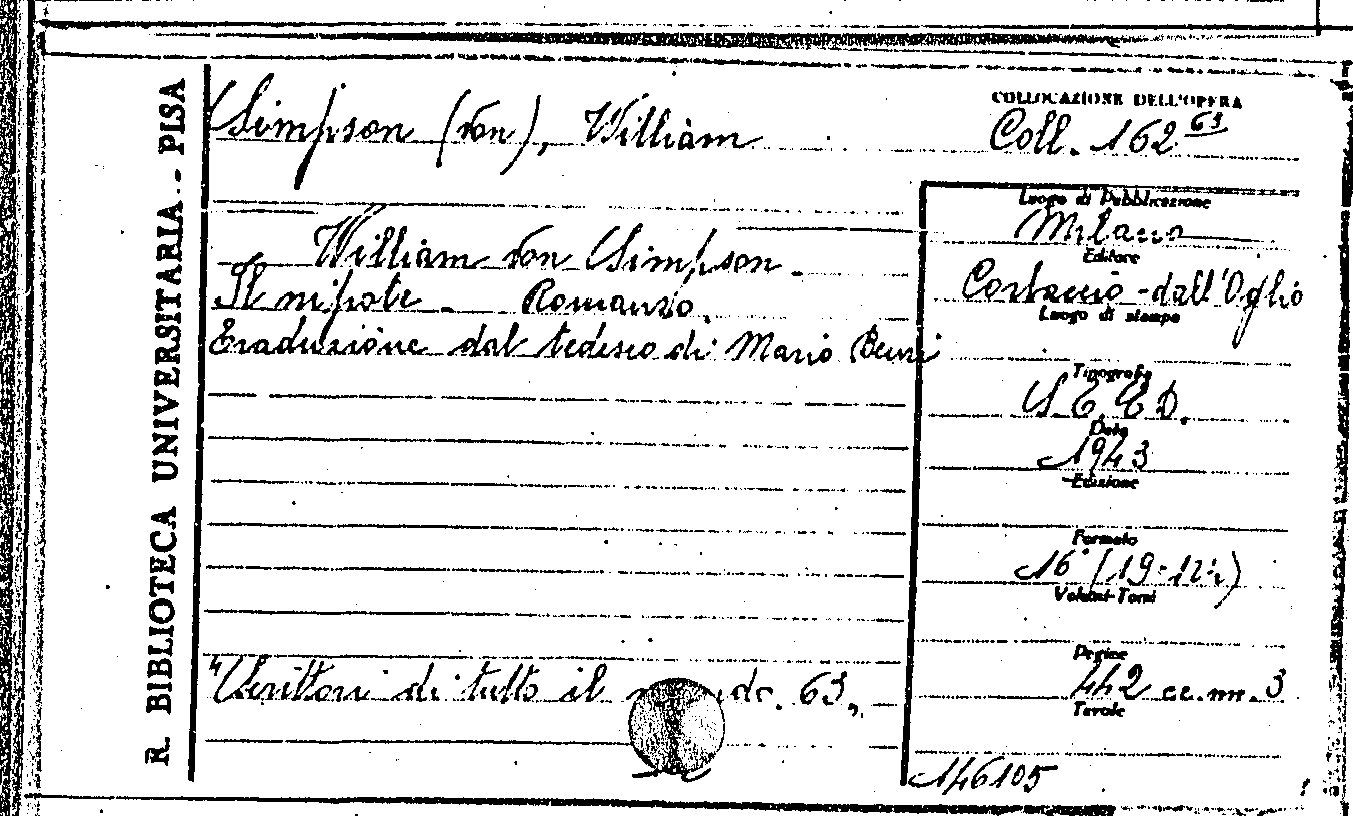 R. BIBLIOTECA UNIVERSITARIA - PISA
Simpson (von), William
COLLOCAZIONE DELL'OPERA
Coll. 162 63
William von Simpson.
Il nipote - Romanzo.
Traduzione dal tedesco di Mario
Luogo di Pubblicazione
Milano
Editore
Corbaccio - dall'Oglio
Luogo di stampa
Tipografia
S.E.E.D.
Data
1943
Edizione
Formato
16° (19-12½)
Volumi-Tomi
Pagine
442 cc.nn.3
Tavole
"Scrittori di tutto il do. 63"
146105